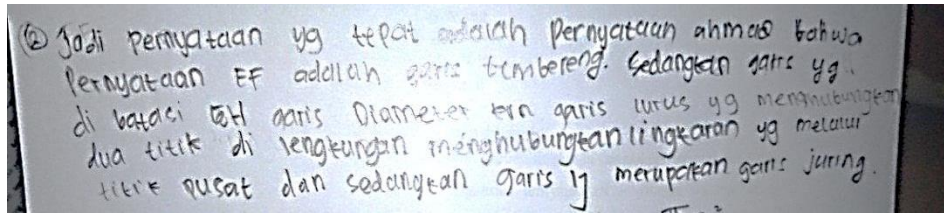 ② Jadi pernyataan yg tepat adalah pernyataan ahmad bahwa
pernyataan EF adalah garis tembereng. Sedangkan garis yg
di batasi GH garis Diameter garis lurus yg menghubungkan
dua titik di lengkungan menghubungkan lingkaran yg melalui
titik pusat dan sedangkan garis IJ merupakan garis juring.